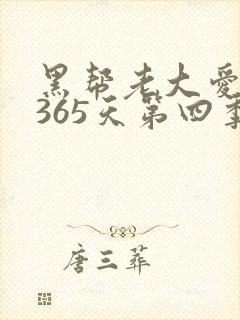 黑帮老大爱
365天第四季
唐三葬